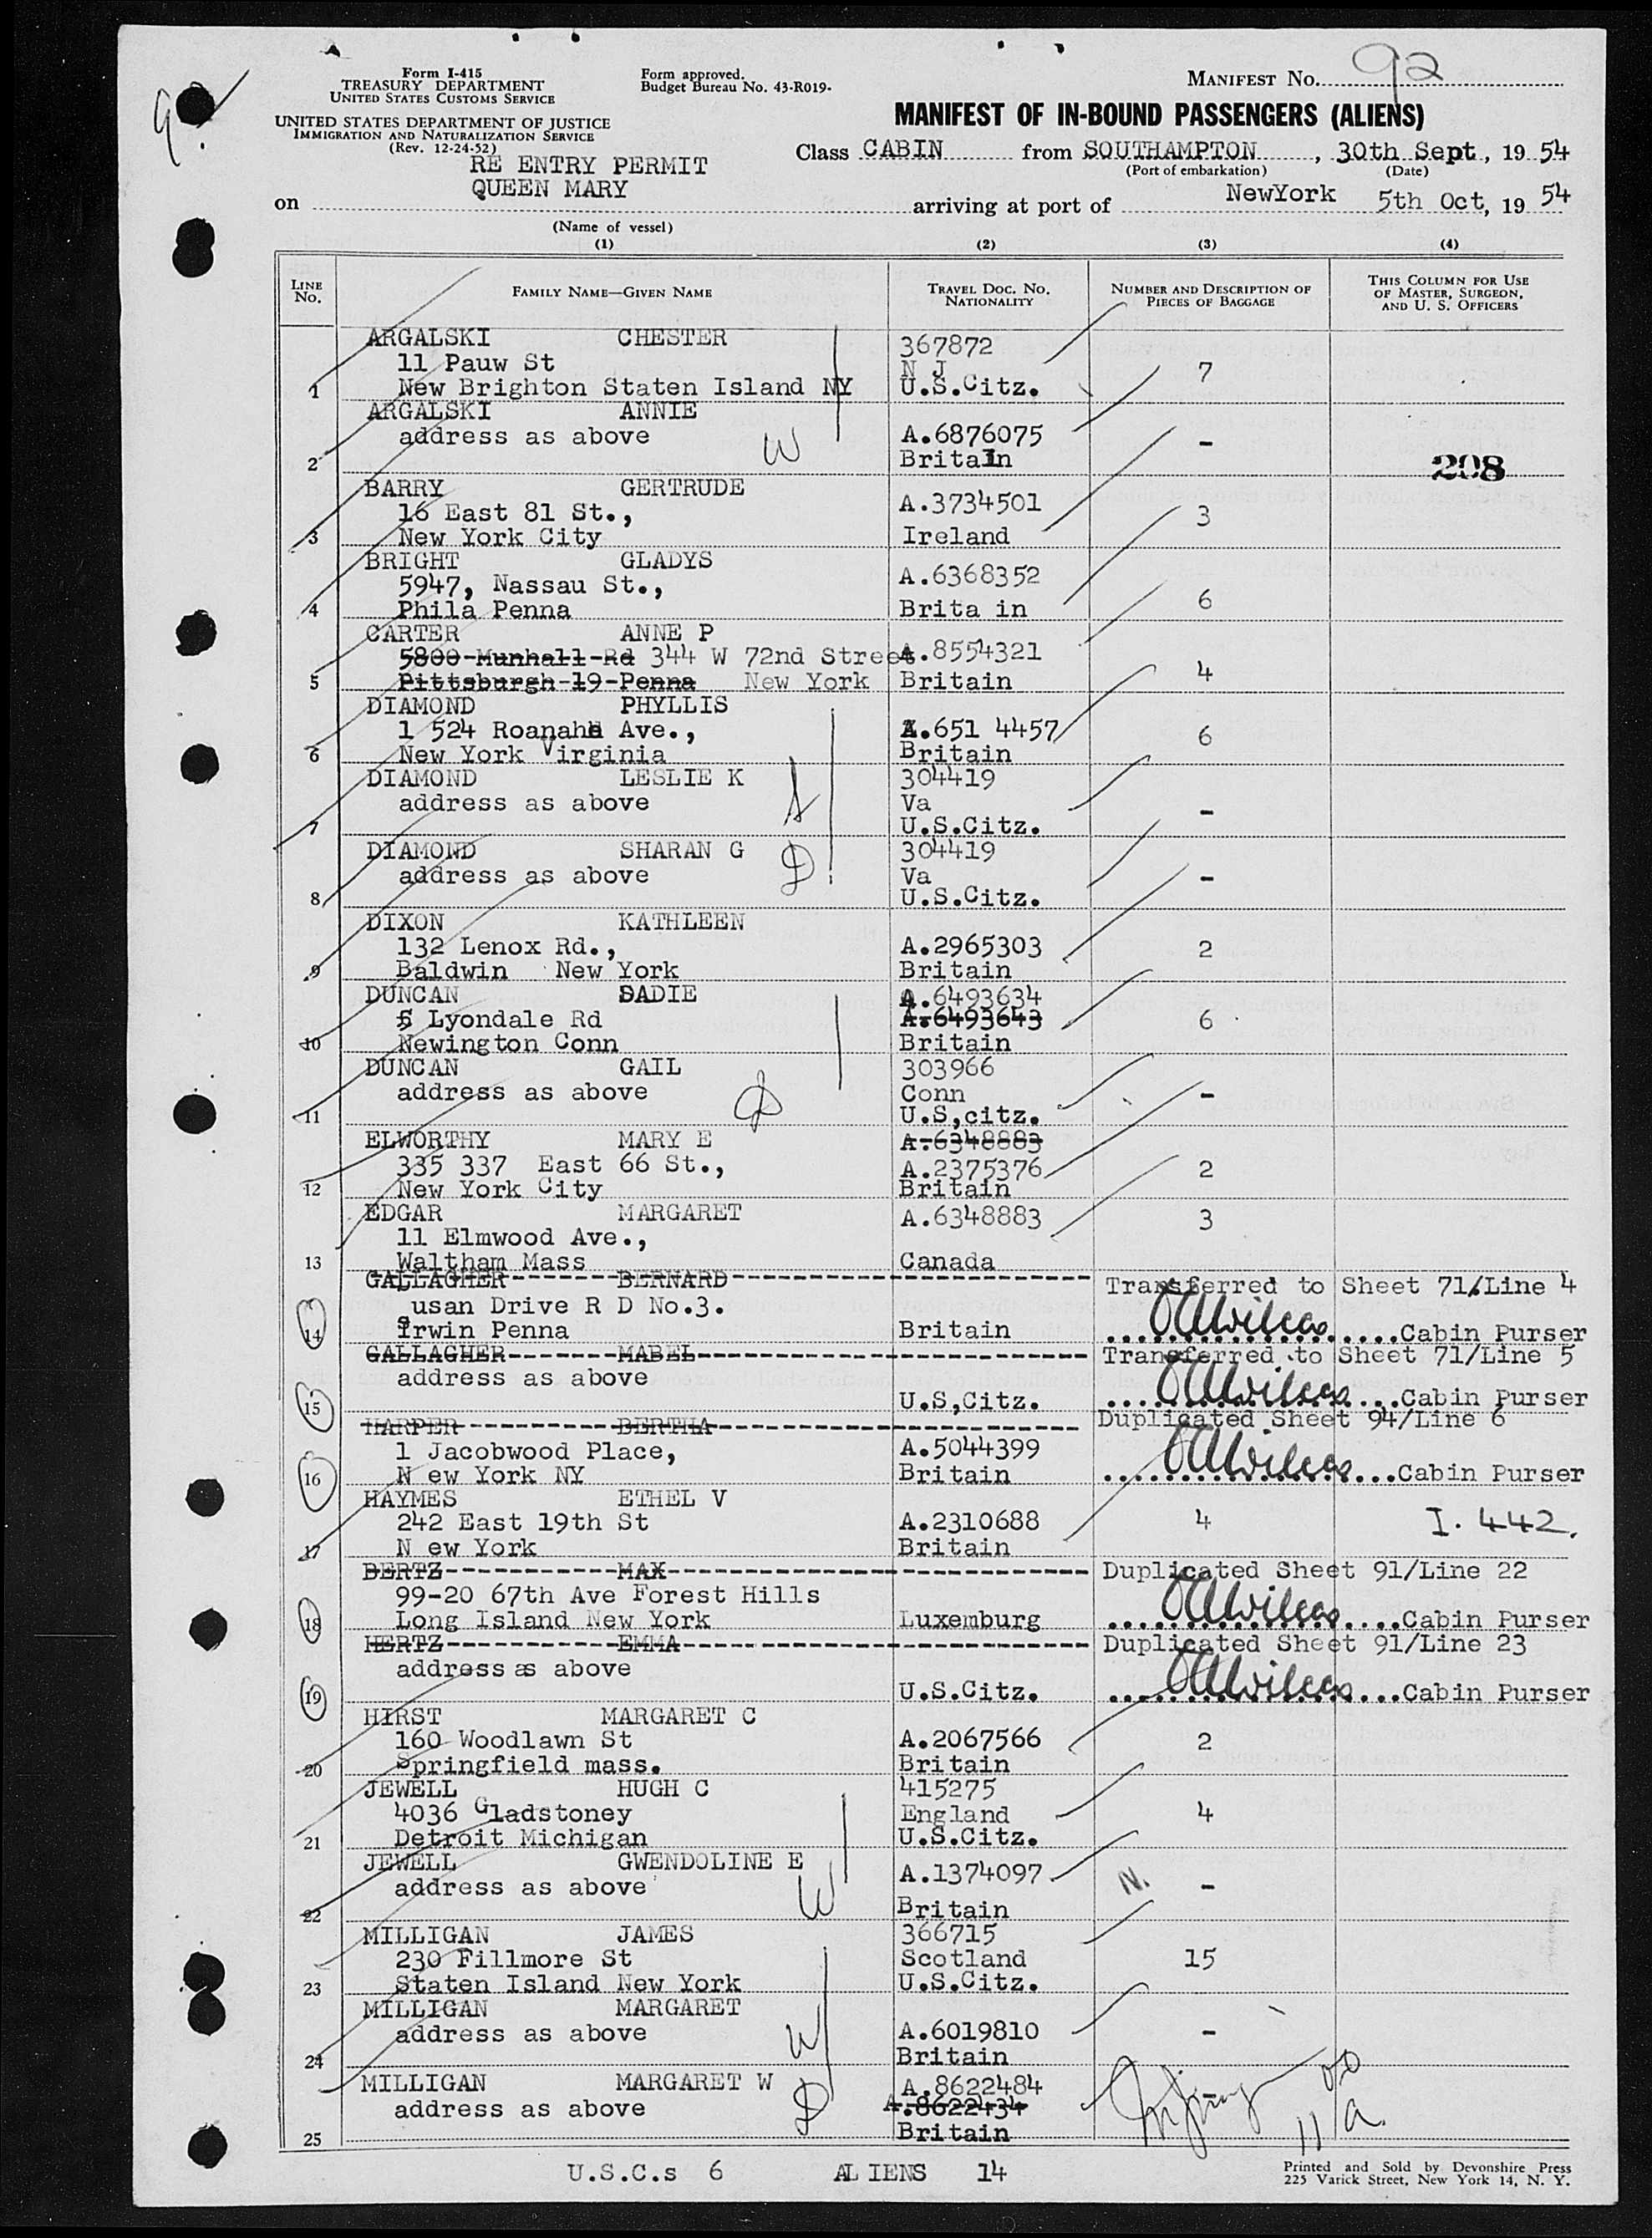 92
Form I-415
TREASURY DEPARTMENT
UNITED STATES CUSTOMS SERVICE
UNITED STATES DEPARTMENT OF JUSTICE
IMMIGRATION AND NATURALIZATION SERVICE
(Rev. 12-24-52)
Form approved.
Budget Bureau No. 43-R019-
MANIFEST No. 92
MANIFEST OF IN-BOUND PASSENGERS (ALIENS)
Class CABIN from SOUTHAMPTON, 30th Sept, 19 54
(Port of embarkation) (Date)
RE ENTRY PERMIT
on QUEEN MARY arriving at port of NewYork 5th Oct, 19 54
(Name of vessel)
(1) (2) (3) (4)
LINE No. FAMILY NAME—GIVEN NAME TRAVEL DOC. NO. NATIONALITY NUMBER AND DESCRIPTION OF PIECES OF BAGGAGE THIS COLUMN FOR USE OF MASTER, SURGEON, AND U. S. OFFICERS
ARGALSKI CHESTER 367872
11 Pauw St N J 7
1 New Brighton Staten Island NY U.S.Citz.
ARGALSKI ANNIE
address as above W A.6876075 -
2 Britain 208
BARRY GERTRUDE
16 East 81 St., A.3734501 3
3 New York City Ireland
BRIGHT GLADYS
5947, Nassau St., A.6368352
4 Phila Penna Brita in 6
CARTER ANNE P
5800-Munhall-Rd 344 W 72nd Street A.8554321
5 Pittsburgh-19-Penna New York Britain 4
DIAMOND PHYLLIS
1 524 Roanahe Ave., A.651 4457 6
6 New York Virginia Britain
DIAMOND LESLIE K 304419
address as above Va -
7 U.S.Citz.
DIAMOND SHARAN G 304419
address as above D Va -
8 U.S.Citz.
DIXON KATHLEEN
132 Lenox Rd., A.2965303 2
9 Baldwin New York Britain
DUNCAN SADIE A.6493634
5 Lyondale Rd A.6493643 6
10 Newington Conn Britain
DUNCAN GAIL 303966
address as above D Conn -
11 U.S,citz.
ELWORTHY MARY E A.6348883
335 337 East 66 St., A.2375376 2
12 New York City Britain
EDGAR MARGARET A.6348883 3
11 Elmwood Ave.,
13 Waltham Mass Canada
GALLAGHER-------BERNARD------------------------ Transferred to Sheet 71/Line 4
Susan Drive R D No.3.
14 Irwin Penna Britain Cabin Purser
GALLAGHER-------MABEL-------------------------- Transferred to Sheet 71/Line 5
address as above
15 U.S,Citz. Cabin Purser
HARPER----------BERTHA------------------------ Duplicated Sheet 94/Line 6
1 Jacobwood Place, A.5044399
16 N ew York NY Britain Cabin Purser
HAYMES ETHEL V
242 East 19th St A.2310688 4 I. 442.
17 N ew York Britain
BERTZ-----------MAX---------------------------- Duplicated Sheet 91/Line 22
99-20 67th Ave Forest Hills
18 Long Island New York Luxemburg Cabin Purser
HERTZ-----------EMMA--------------------------- Duplicated Sheet 91/Line 23
address as above
19 U.S.Citz. Cabin Purser
HIRST MARGARET C
160 Woodlawn St A.2067566 2
20 Springfield mass. Britain
JEWELL HUGH C 415275
4036 Gladstoney England 4
21 Detroit Michigan U.S.Citz.
JEWELL GWENDOLINE E A.1374097
address as above W N. -
22 Britain
MILLIGAN JAMES 366715
230 Fillmore St Scotland 15
23 Staten Island New York U.S.Citz.
MILLIGAN MARGARET
address as above W A.6019810 -
24 Britain
MILLIGAN MARGARET W A.8622484 -
address as above D A.8622434
25 Britain
U.S.C.s 6 ALIENS 14
Printed and Sold by Devonshire Press
225 Varick Street, New York 14, N. Y.